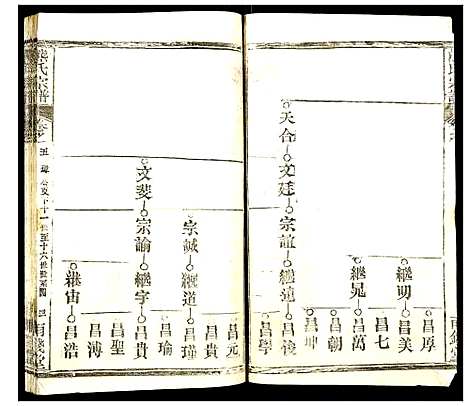 繼明
昌厚
昌美
昌七
繼晃
昌萬
昌朝
昌坤
天合
文廷
宗誼
繼堯
昌後
昌學
宗誠
繼道
昌元
昌貴
昌瑾
昌瑜
文斐
宗諭
繼宇
昌貴
昌聖
昌溥
繼宙
昌浩
氏宗譜